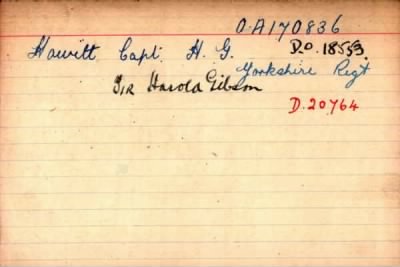 O.A170836
Howitt Capt. H. G. D.O. 18553.
Yorkshire Regt
SIR Harold Gibson
D.20764